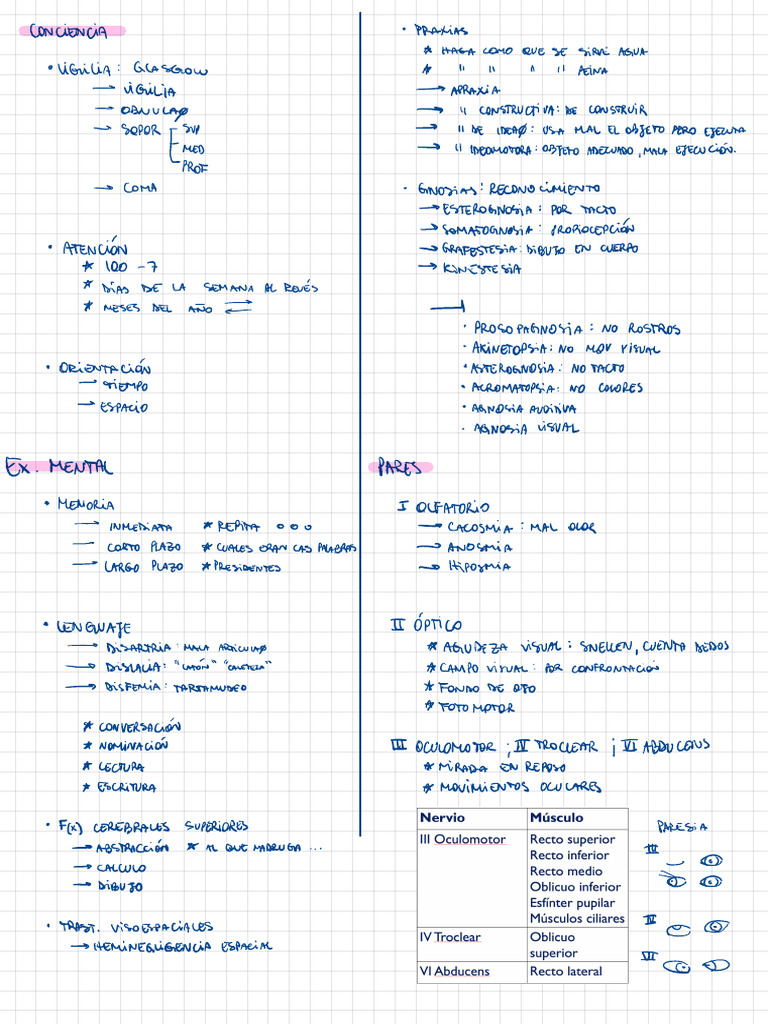 CONCIENCIA
• VIGILIA: GLASGOW
→ VIGILIA
→ OBNUBILAØ
→ SOPOR SUP
MED
PROF
→ COMA
• ATENCIÓN
* 100 -7
* DÍAS DE LA SEMANA AL REVÉS
* MESES DEL AÑO ⇄
• ORIENTACIÓN
→ TIEMPO
→ ESPACIO
EX. MENTAL
• MEMORIA
→ INMEDIATA * REPITA o o o
→ CORTO PLAZO * CUALES ERAN LAS PALABRAS
→ LARGO PLAZO * PRESIDENTES
• LENGUAJE
→ DISARTRIA: MALA ARTICULAØ
→ DISLALIA:
→ DISFEMIA: TARTAMUDEO
* CONVERSACIÓN
* NOMINACIÓN
* LECTURA
* ESCRITURA
• F(x) CEREBRALES SUPERIORES
→ ABSTRACCIÓN * AL QUE MADRUGA ...
→ CALCULO
→ DIBUJO
• TRAST. VISOESPACIALES
→ HEMINEGLIGENCIA ESPACIAL
• PRAXIAS
* HAGA COMO QUE SE SIRVE AGUA
* " " " " PEINA
→ APRAXIA
→ " CONSTRUCTIVA: DE CONSTRUIR
→ " DE IDEAØ: USA MAL EL OBJETO PERO EJECUTA
→ " IDEOMOTORA: OBJETO ADECUADO, MALA EJECUCIÓN.
• GNOSIAS: RECONOCIMIENTO
→ ESTEROGNOSIA: POR TACTO
→ SOMATOGNOSIA: PROPIOCEPCIÓN
→ GRAFESTESIA: DIBUJO EN CUERPO
→ KINESTESIA
• PROSOPAGNOSIA: NO ROSTROS
• AKINETOPSIA: NO MOV VISUAL
• ASTEROGNOSIA: NO TACTO
• ACROMATOPSIA: NO COLORES
• AGNOSIA AUDITIVA
• AGNOSIA VISUAL
PARES
I OLFATORIO
→ CACOSMIA: MAL OLOR
→ ANOSMIA
→ HIPOSMIA
II ÓPTICO
* AGUDEZA VISUAL: SNELLEN, CUENTA DEDOS
* CAMPO VISUAL: POR CONFRONTACIÓN
* FONDO DE OJO
* FOTOMOTOR
III OCULOMOTOR ; IV TROCLEAR ; VI ABDUCENS
* MIRADA EN REPOSO
* MOVIMIENTOS OCULARES
Nervio Músculo
III Oculomotor Recto superior
Recto inferior
Recto medio
Oblicuo inferior
Esfínter pupilar
Músculos ciliares
IV Troclear Oblicuo
superior
VI Abducens Recto lateral
PARESIA
III
IV
VI